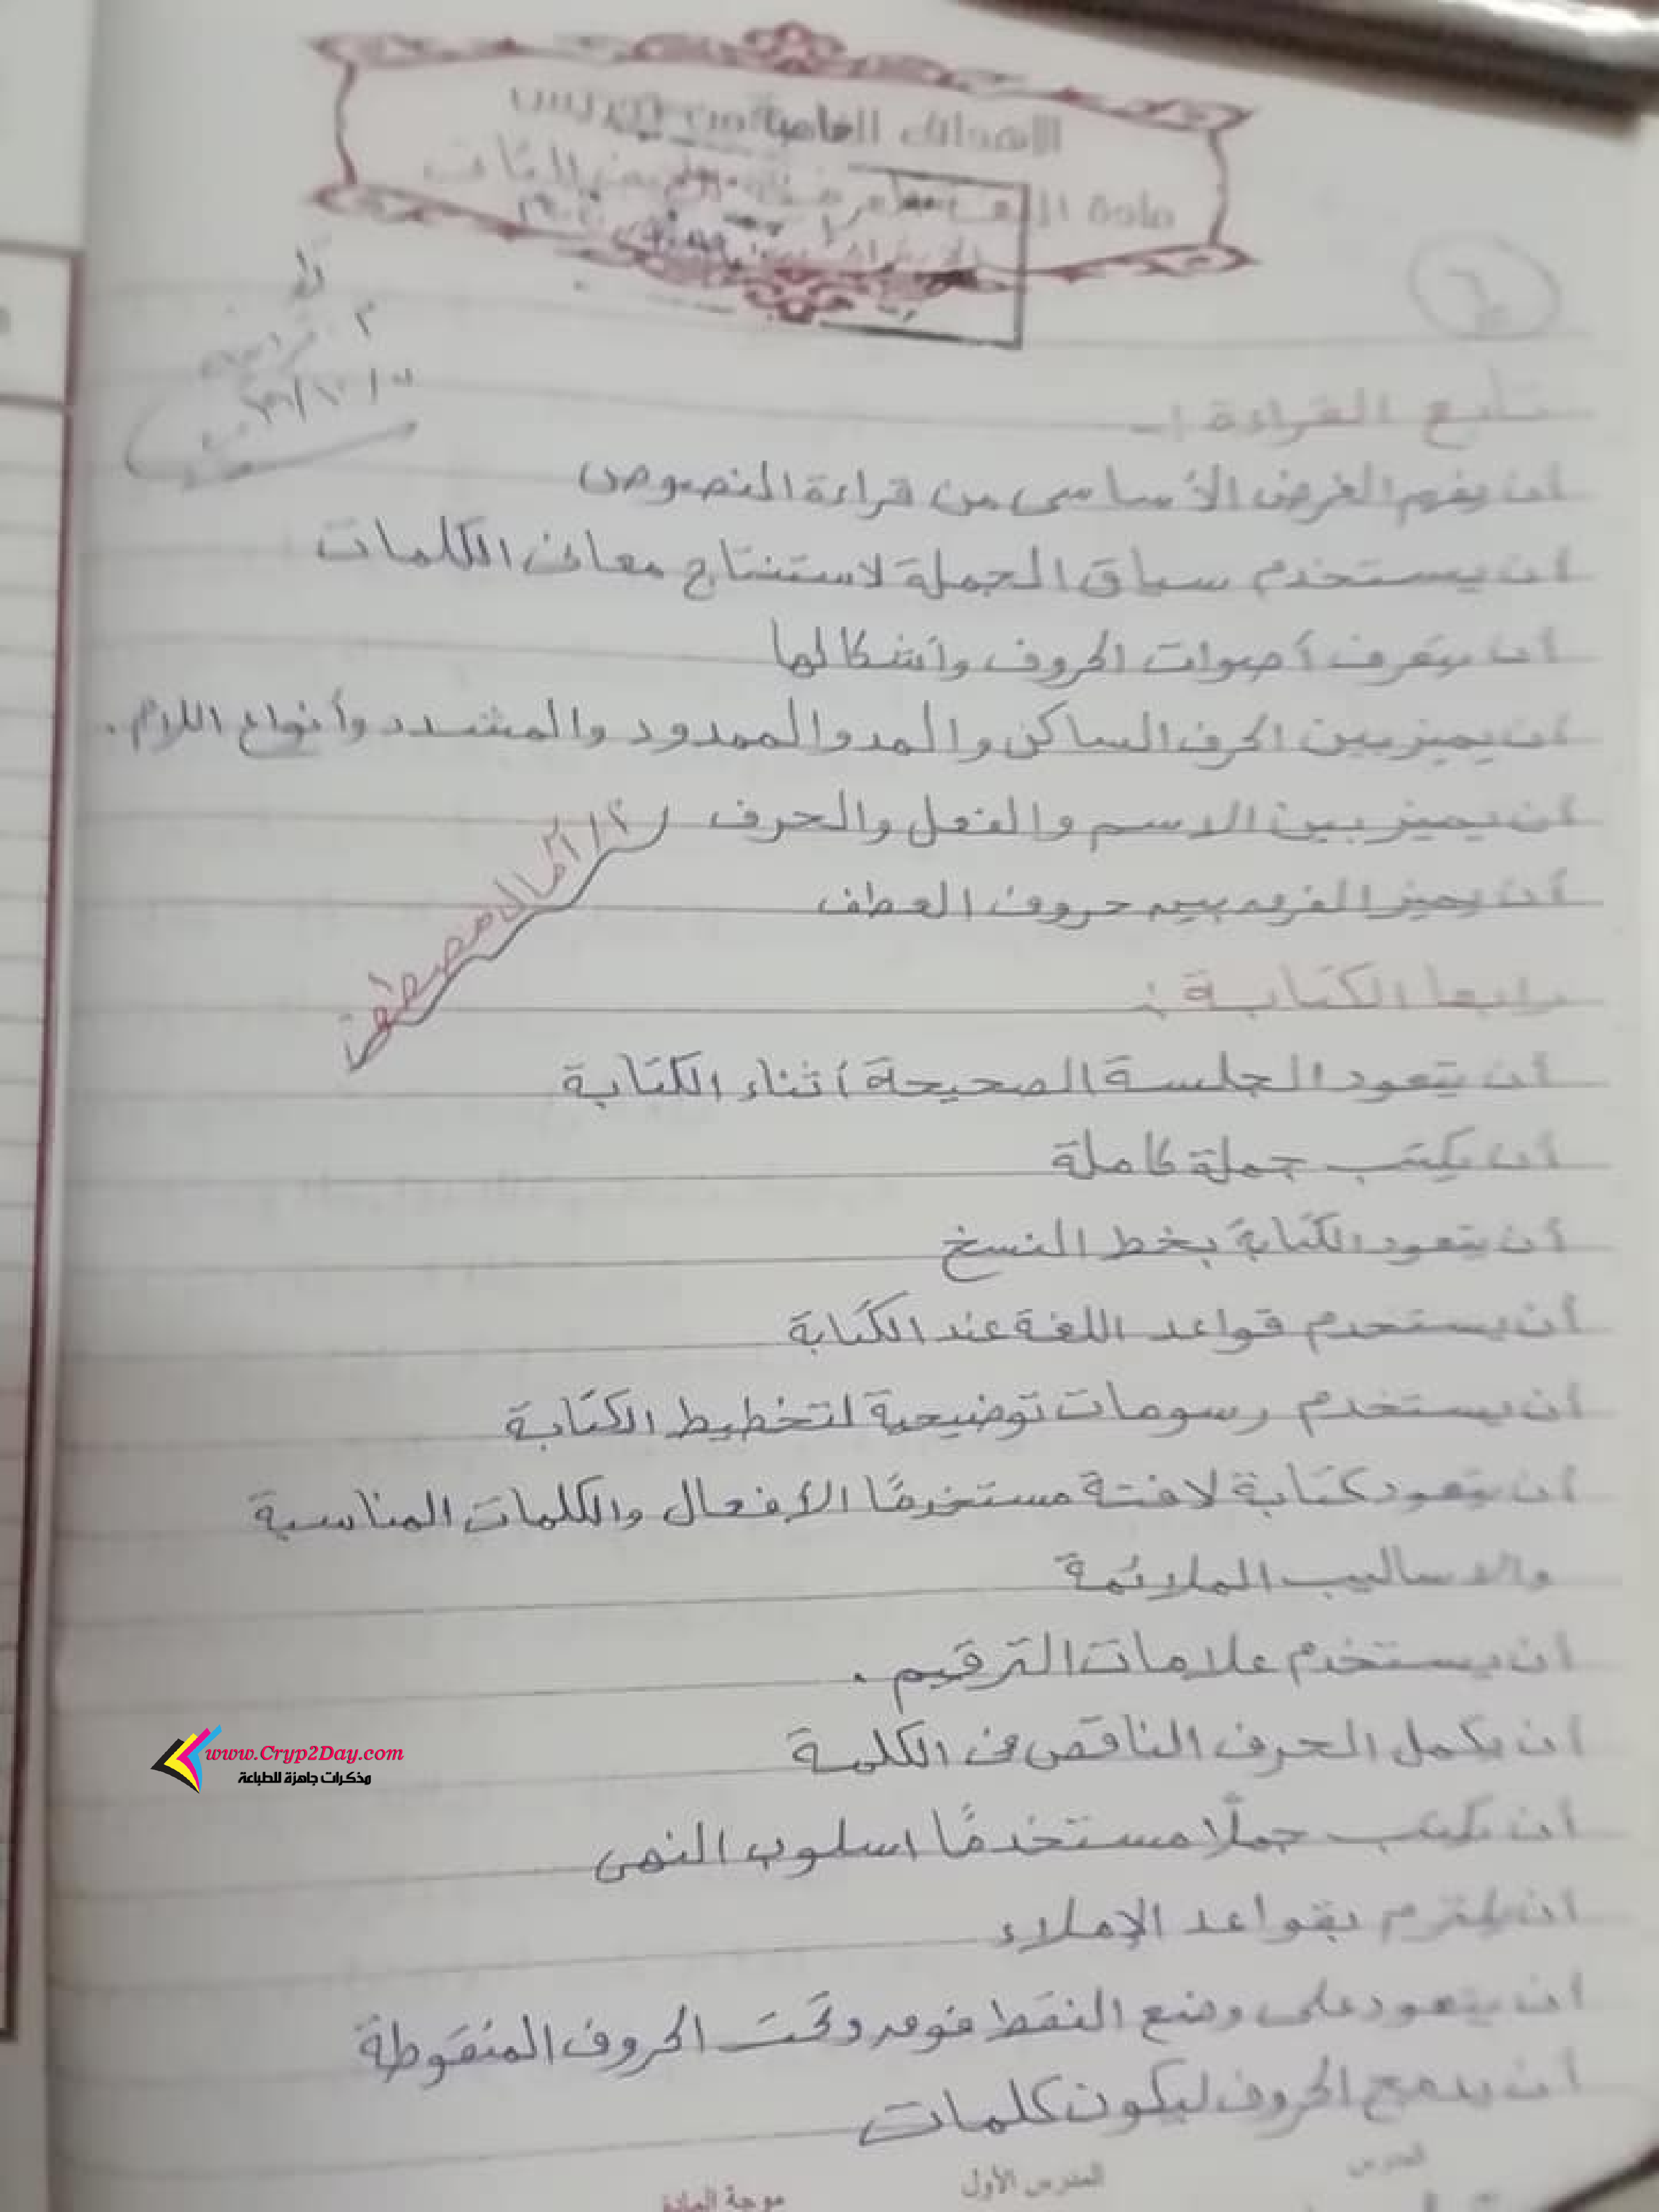 الأهداف العامة من تدريس
مادة
تابع القراءة :-
أن يفهم الغرض الأساسى من قراءة النصوص
أن يستخدم سياق الجملة لاستنتاج معانى الكلمات
أن يتعرف أصوات الحروف وأشكالها
أن يميز بين الحرف الساكن والمد والممدود والمشدد وأنواع اللام.
أن يميز بين الاسم والفعل والحرف
أن يميز الفرق بين حروف العطف
رابعا الكتابة :
أن يتعود الجلسة الصحيحة أثناء الكتابة
أن يكتب جملة كاملة
أن يتعود الكتابة بخط النسخ
أن يستخدم قواعد اللغة عند الكتابة
أن يستخدم رسومات توضيحية لتخطيط الكتابة
أن يتعود كتابة لافتة مستخدمًا الأفعال والكلمات المناسبة
والاساليب الملائمة
أن يستخدم علامات الترقيم .
أن يكمل الحرف الناقص فى الكلمة
أن يكتب جملًا مستخدمًا اسلوب النهى
أن يلتزم بقواعد الإملاء
أن يتعود على وضع النقط فوق وتحت الحروف المنقوطة
أن يدمج الحروف ليكون كلمات
www.Cryp2Day.com
مذكرات جاهزة للطباعة
المدرس المدرس الأول موجة المادة